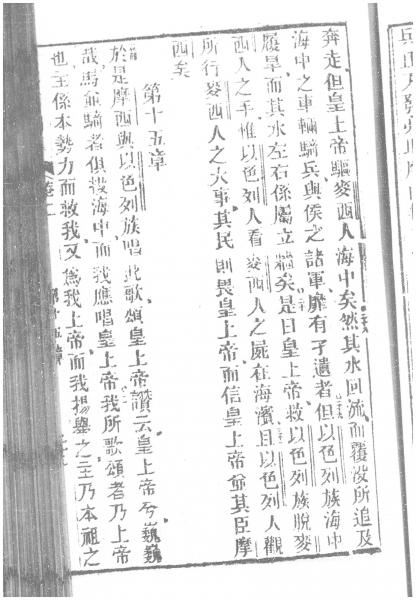 奔走但皇上帝驅麥西人海中矣然其水回流而覆沒所追及
海中之車輛騎兵與侯之諸軍靡有孑遺者但以色列族海中
履旱而其水左右係屬立牆矣是日皇上帝救以色列族脫麥
西人之手惟以色列人看麥西人之屍在海濱且以色列人觀
所行麥西人之大事其民則畏皇上帝而信皇上帝並其臣摩
西矣
第十五章
於是摩西與以色列族唱此歌頌皇上帝讚云皇上帝兮巍巍
哉馬並騎者俱沒海中而我應唱皇上帝我所歌頌者乃上帝
也主係本勢力而救我又為我上帝而我揚舉之主乃本祖之
卷二
第十五章